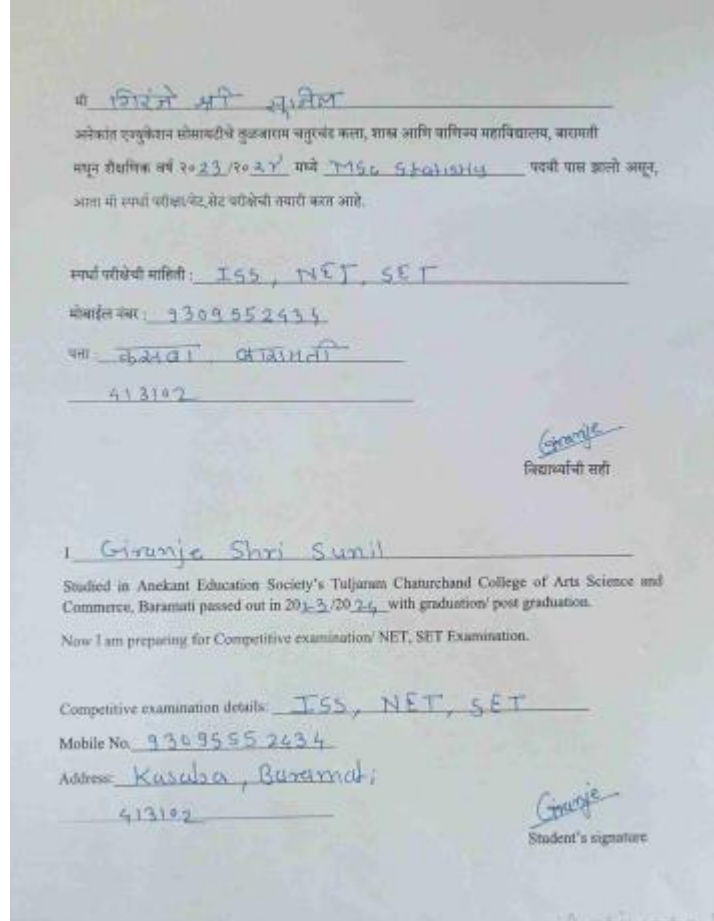 मी गिरंजे श्री सुनिल
अनेकांत एज्युकेशन सोसायटीचे तुळजाराम चतुरचंद कला, शास्त्र आणि वाणिज्य महाविद्यालय, बारामती
मधून शैक्षणिक वर्ष २०23/२०२४ मध्ये MSc Statistics पदवी पास झालो असून,
आता मी स्पर्धा परीक्षा/नेट,सेट परीक्षेची तयारी करत आहे.
स्पर्धा परीक्षेची माहिती : ISS, NET, SET
मोबाईल नंबर : 9309552434
पत्ता : कसबा, बारामती
413102
Giranje
विद्यार्थ्याची सही
I Giranje Shri Sunil
Studied in Anekant Education Society's Tuljaram Chaturchand College of Arts Science and
Commerce, Baramati passed out in 2023/2024 with graduation/ post graduation.
Now I am preparing for Competitive examination/ NET, SET Examination.
Competitive examination details: ISS, NET, SET
Mobile No. 93095552434
Address: Kasaba, Baramati
413102
Giranje
Student's signature